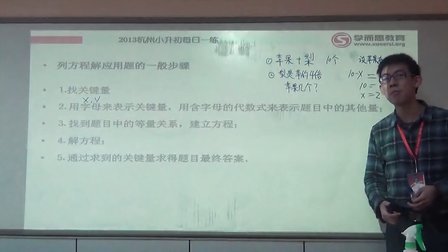 2013杭州小升初每日一练
学而思教育
www.xueersi.org
列方程解应用题的一般步骤
1.找关键量
x、y
2.用字母来表示关键量,用含字母的代数式来表示题目中的其他量;
3.找到题目中的等量关系,建立方程;
4.解方程;
5.通过求到的关键量求得题目最终答案.
① 苹果+梨 10个
② 梨是苹果的4倍
苹果几个?
设苹果
10-x=
10=
x=2